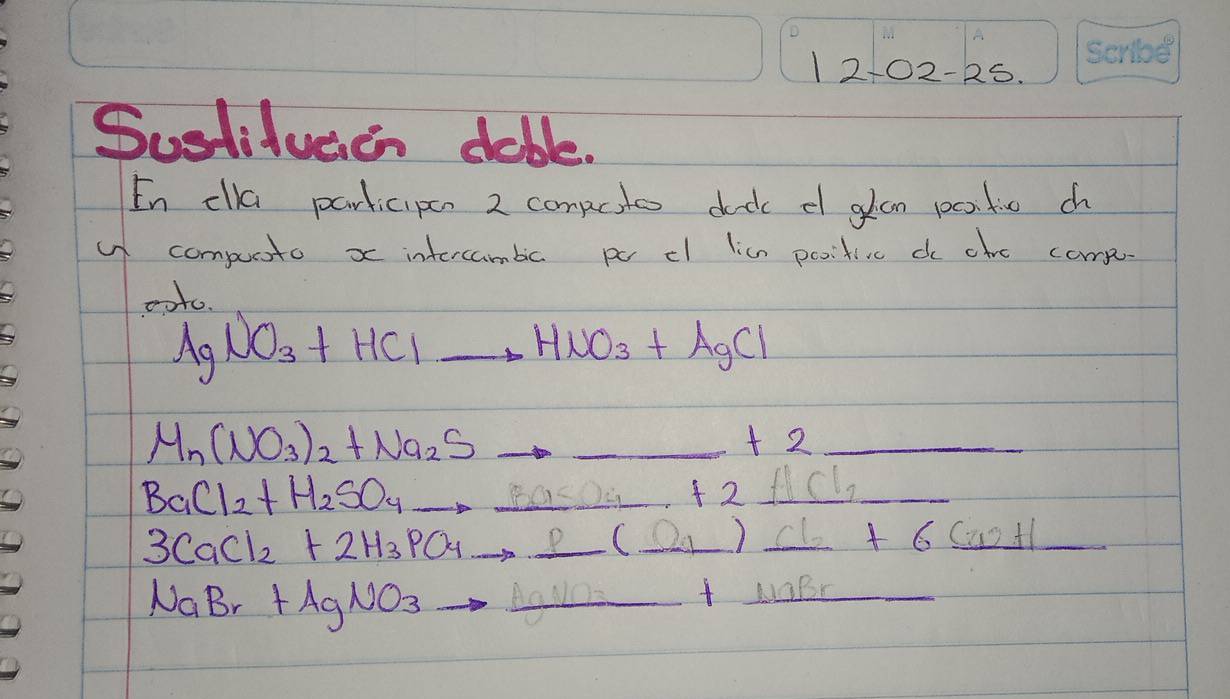 D M A
12-02-25.
Scribe®
Sustitución doble.
En ella participan 2 compuestos donde el ion positivo de
un compuesto se intercambia por el lion positivo de otro compu-
esto.
AgNO₃ + HCl → HNO₃ + AgCl
Mn(NO₃)₂ + Na₂S → ______ + 2 ______
BaCl₂ + H₂SO₄ → BaSO₄ + 2 HCl₂
3CaCl₂ + 2H₃PO₄ → P ( O₄ ) Cl₂ + 6 Ca2H
NaBr + AgNO₃ → AgNO₃ + NaBr